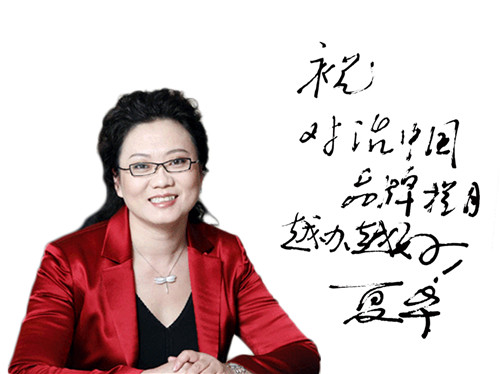 祝
对话中国
品牌栏目
越办越好!
夏华